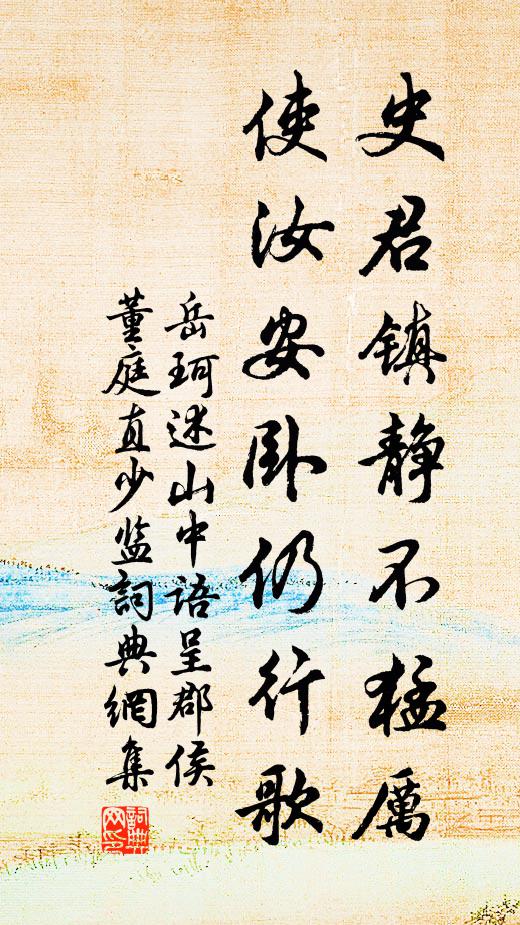 史君镇静不猛厲
使汝安卧仍行歌
岳珂述山中语呈郡侯
董庭直少监詞典網集
詞典网印